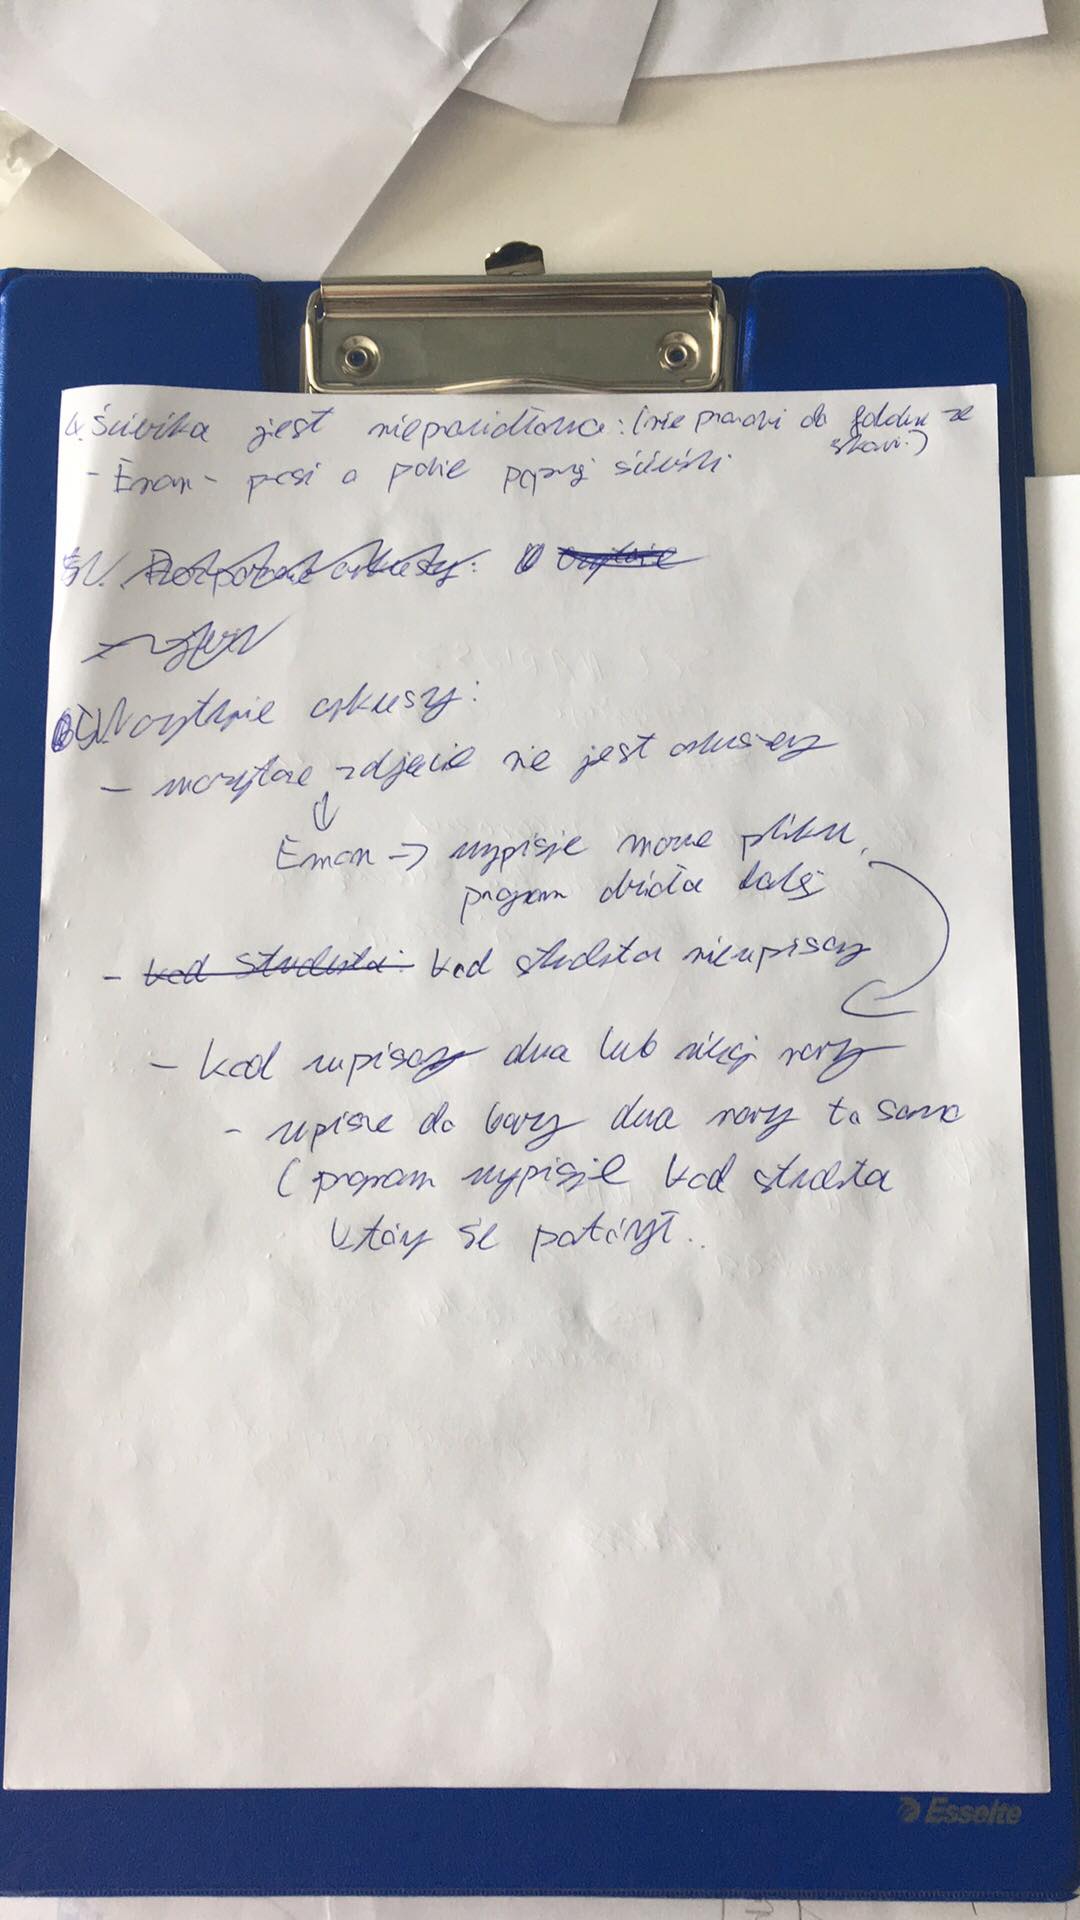 4. Ścieżka jest nieprawidłowa: (nie prowadzi do folderu ze
skan.)
- Error - prosi o podanie poprawnej ścieżki
Wczytanie arkuszy:
- wczytane zdjęcie nie jest arkuszem
Error -> wypisuje nazwę pliku,
program działa dalej
- kod studenta: kod studenta niewpisany
- kod wpisany dwa lub więcej razy
- wpisze do bazy dwa razy to samo
(program wypisuje kod studenta
który się powtórzył..
Esselte